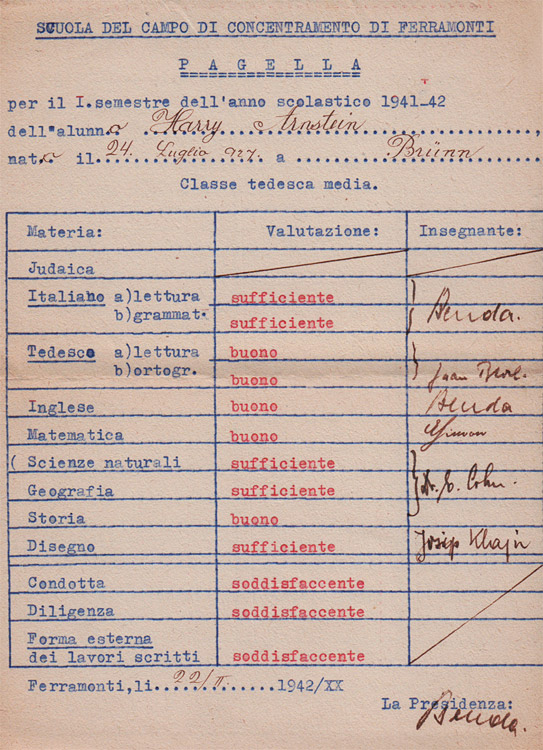 SCUOLA DEL CAMPO DI CONCENTRAMENTO DI FERRAMONTI
PAGELLA
per il I.semestre dell'anno scolastico 1941-42
dell'alunn o Harry Arnstein
nat o il 24. Luglio 927. a Brünn
Classe tedesca media.
Materia: Valutazione: Insegnante:
Judaica
Italiano a)lettura sufficiente
b)grammat. sufficiente Benda.
Tedesco a)lettura buono
b)ortogr. buono
Inglese buono Benda
Matematica buono
( Scienze naturali sufficiente
Geografia sufficiente Dr. E. Cohn.
Storia buono
Disegno sufficiente Josip
Condotta soddisfaccente
Diligenza soddisfaccente
Forma esterna
dei lavori scritti soddisfaccente
Ferramonti,li 22/II. 1942/XX
La Presidenza:
Benda.